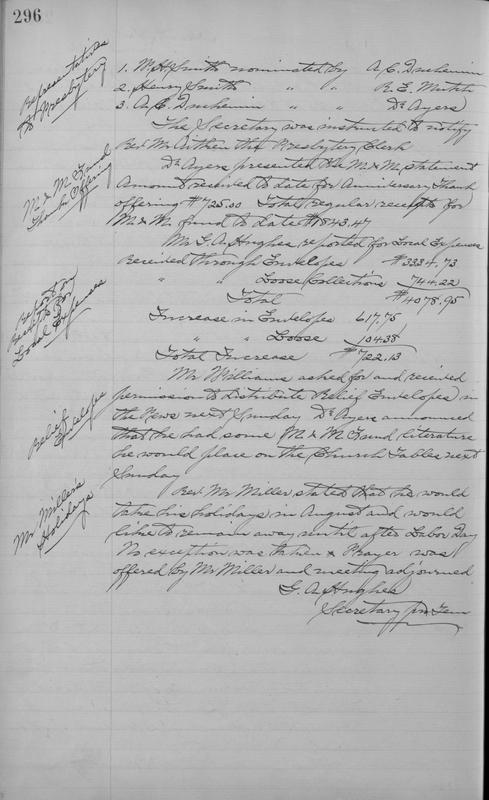 296
Representatives
to Presbytery
1. W. H. Smith nominated by A. C.
2. Henry Smith " " R. E.
3. A. C. " " Dr Ayers
The Secretary was instructed to notify
Rev. Mr Aitken the Presbytery Clerk
M. & M. Fund
Thank Offering
Dr Ayers presented the M. & M. statement
Amount received to date for Anniversary Thank
offering $725.00 Total regular receipts for
M. & M. fund to date $1843.47
Report on
Receipts for
Local Expenses
Mr G. A. Hughes reported for Local Expenses
Received through Envelopes $3334.73
" " Loose Collections 744.22
Total $4078.95
Increase in Envelopes 617.75
" " Loose 104.38
Total Increase $722.13
Relief
Envelopes
Mr Williams asked for and received
permission to distribute Relief Envelopes in
the Pews next Sunday Dr Ayers announced
that he had some M. & M. Fund literature
he would place on the Church Tables next
Sunday
Mr Miller's
Holidays
Rev. Mr Miller stated that he would
take his holidays in August and would
like to remain away until after Labor Day
No exception was taken & Prayer was
offered by Mr Miller and meeting adjourned
G. A. Hughes
Secretary pro Tem